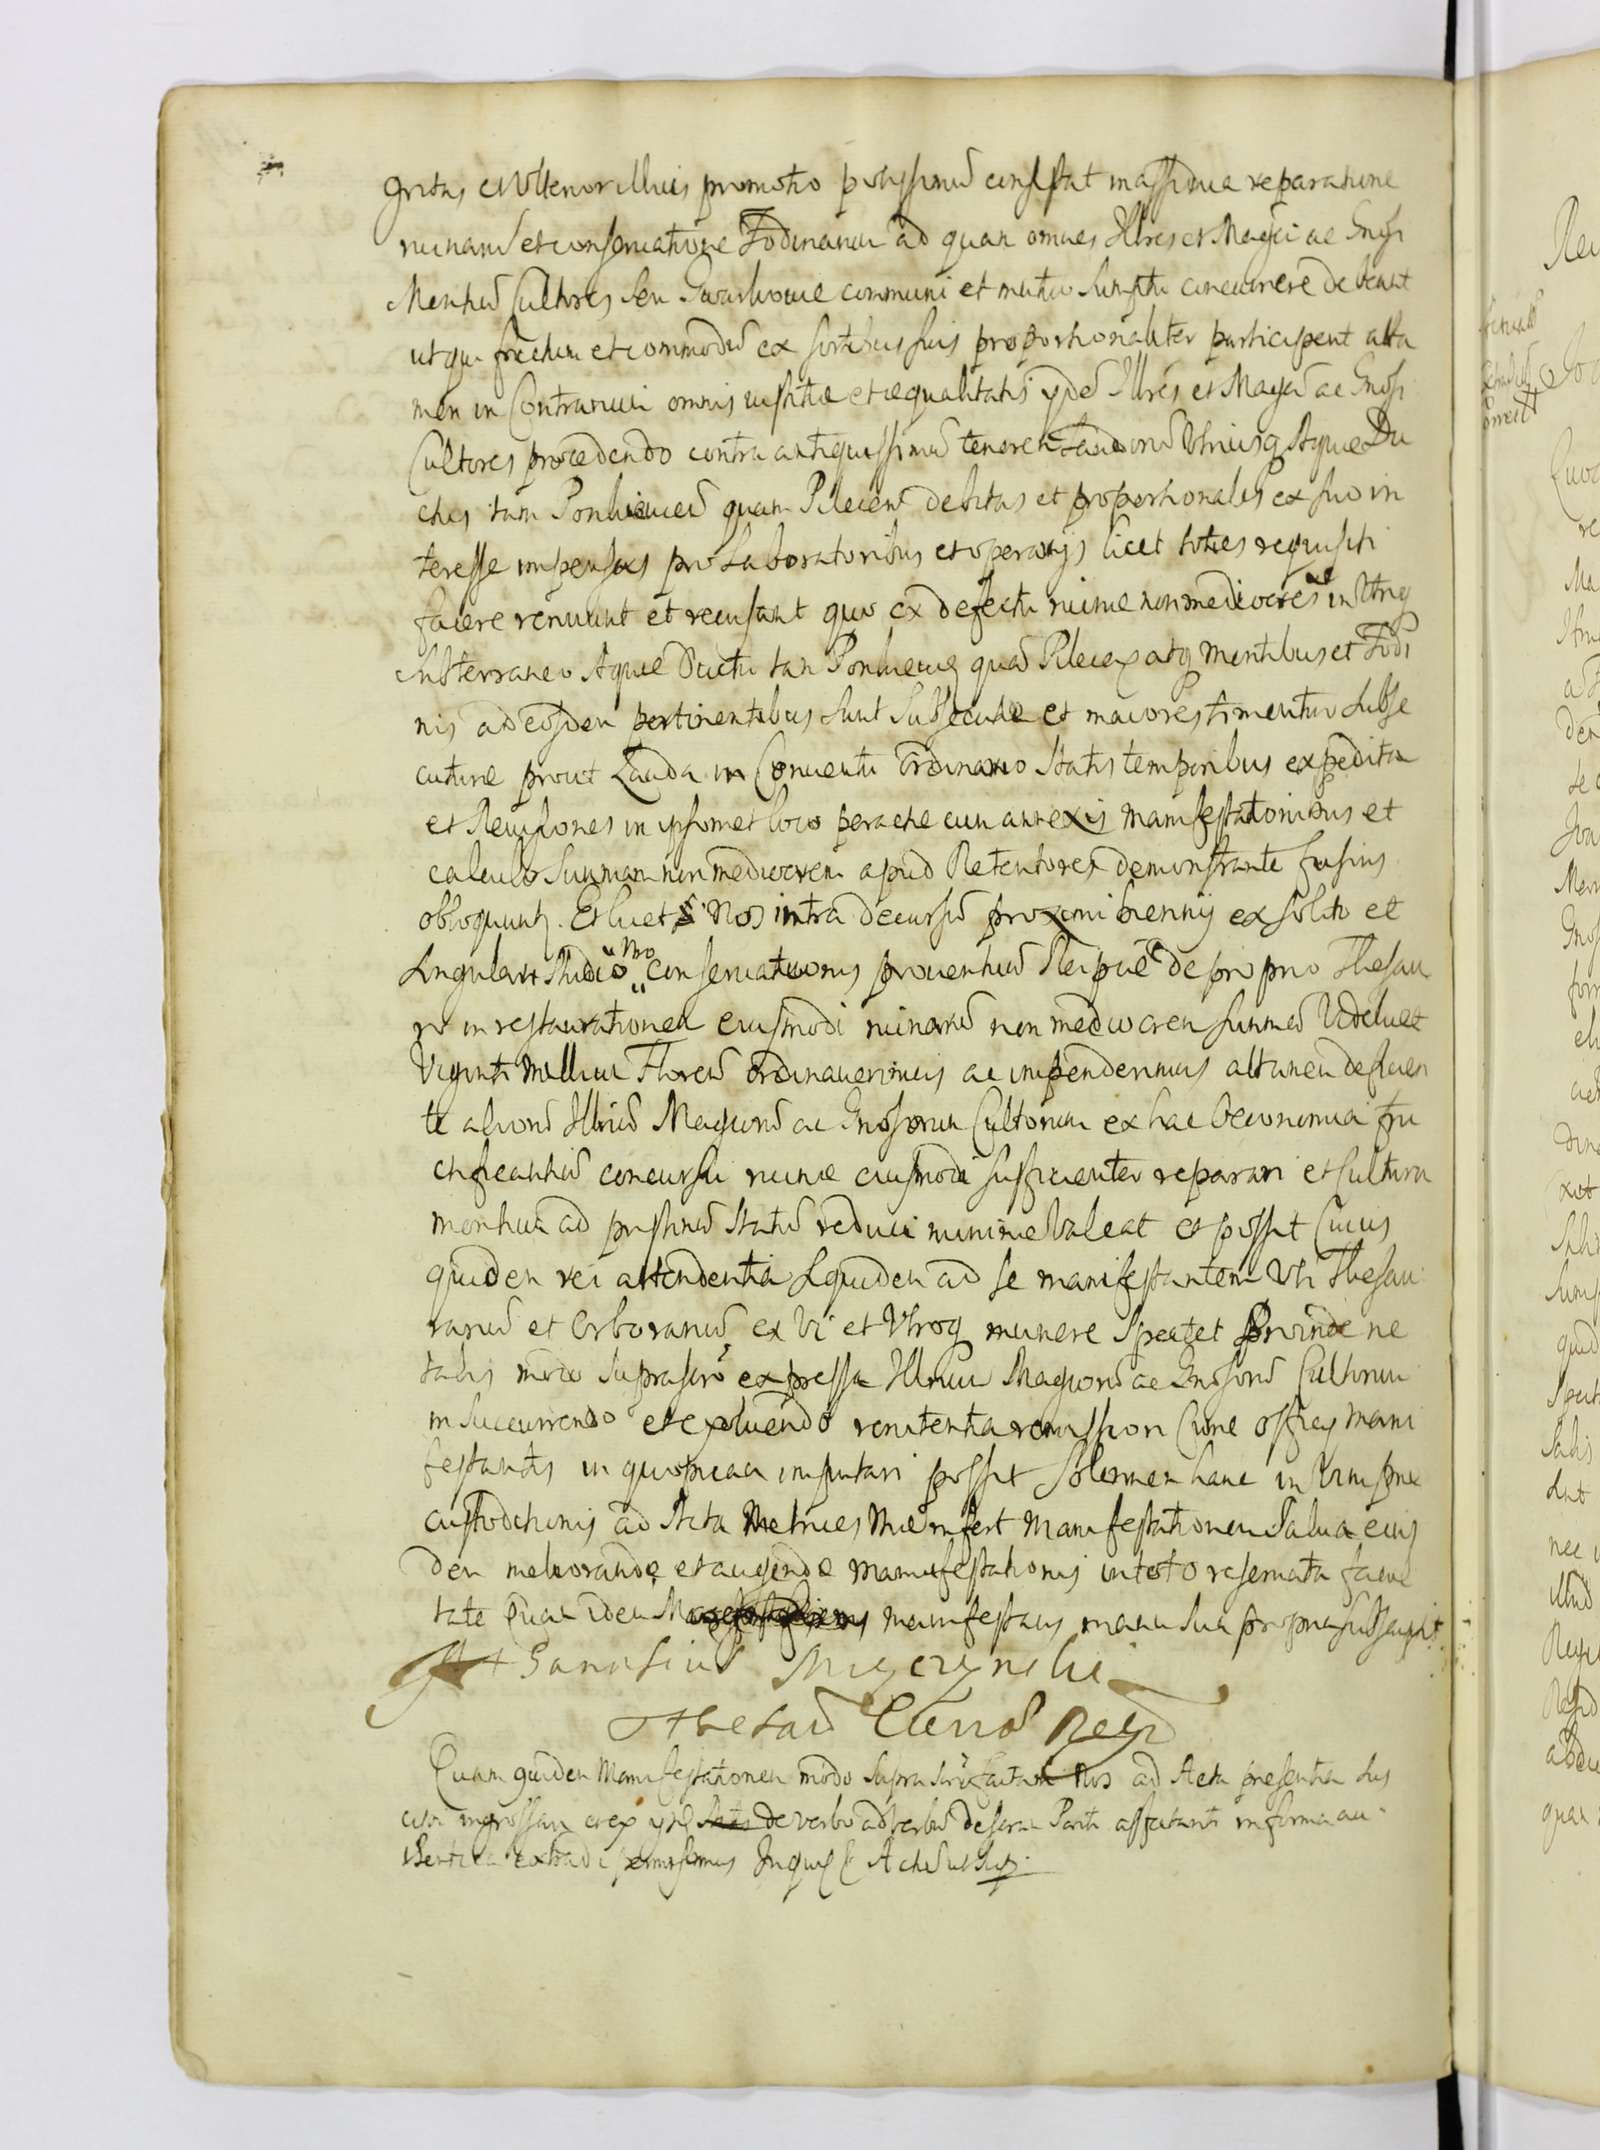 gritas et Ulterior illius promotio potissimũ consistat in assidua reparatione
ruinarũ et conservatione Fodinarum ad quam omnes Illres et Magci ac Gnosi
Montiũ Cultores seu Gwarkowie communi et mutuo sumptu concurrere debeant
utqui fructum et commodũ ex sortibus suis proportionaliter participent atta
men in Contrarium omnis iustitiæ et æqualitatis ijdẽ Illres et Magci ac Gnosi
Cultores procedendo contra antiquissimũ tenorem Laudorũ Utriusq Aquæ Du
ctus tam Ponikoviceñ quam Pileceñ debitas et proportionales ex suo in
teresse impensas pro Laboratoribus et operarijs licet toties requisiti
facere renuunt et recusant quo ex defectu ruinæ non mediocres in Utroq
subterraneo Aquæ Ductu tam quã Pilecen atq montibus et Fodi
nis ad eosdem pertinentibus sunt subsecutæ et maiores timentur subse
cuturæ prout Lauda in Conventu Ordinario statis temporibus expedita
et Revisiones in ipsomet loco peractæ cum annexis manifestationibus et
calculo Summam non mediocrem apud Retentores demonstrante fusius
obloquuntr. Et licet Nos intra decursũ proximi biennij ex solito et
singulari studio conservationis proventuũ Reipcæ de proprio Thesau
ro in restaurationem eiusmodi ruinarũ non mediocrem summã Videlicet
Viginti Millium Florenũ ordinaverimus ac impenderimus attamen deficien
te aliorũ Illriũ Magcorũ ac Gnosorum Cultorum ex hac Oeconomia fru
ctificantiũ concursu ruinæ eiusmodi sufficienter reparari et Cultura
montium ad pristinũ statũ reduci minime valeat et possit Cuius
quidem rei attendentia siquidem ad se manifestantem Uti Thesau
rariũ et Olborariũ ex Vi et Utroq munere spectet Proinde ne
talis modo suprascro expressa Illrium Magcorũ ac Gnosorũ Cultorum
in succurrendo et exolvendo renitentia remissiori Curæ officij mani
festantis in quopiam imputari possit Solennem hanc in Vim præ
custoditionis ad Acta Metrices infert Manifestationem Salva eius
dem meliorandæ et augendæ manifestationis in toto reservata facul
tate Quam idem manifestans manu sua propria subscripsit
Athanasius Miączynski
Thesaũ Curiæ Regni
Quam quidem Manifestationem modo suprascro factam Nos ad Acta presentia sus
cipi ingrossari et ex ijsdẽ de verbo ad verbũ descrãm Parti affectanti in forma au
thentica extradi permisimus Inquorũ Actũ ut supra